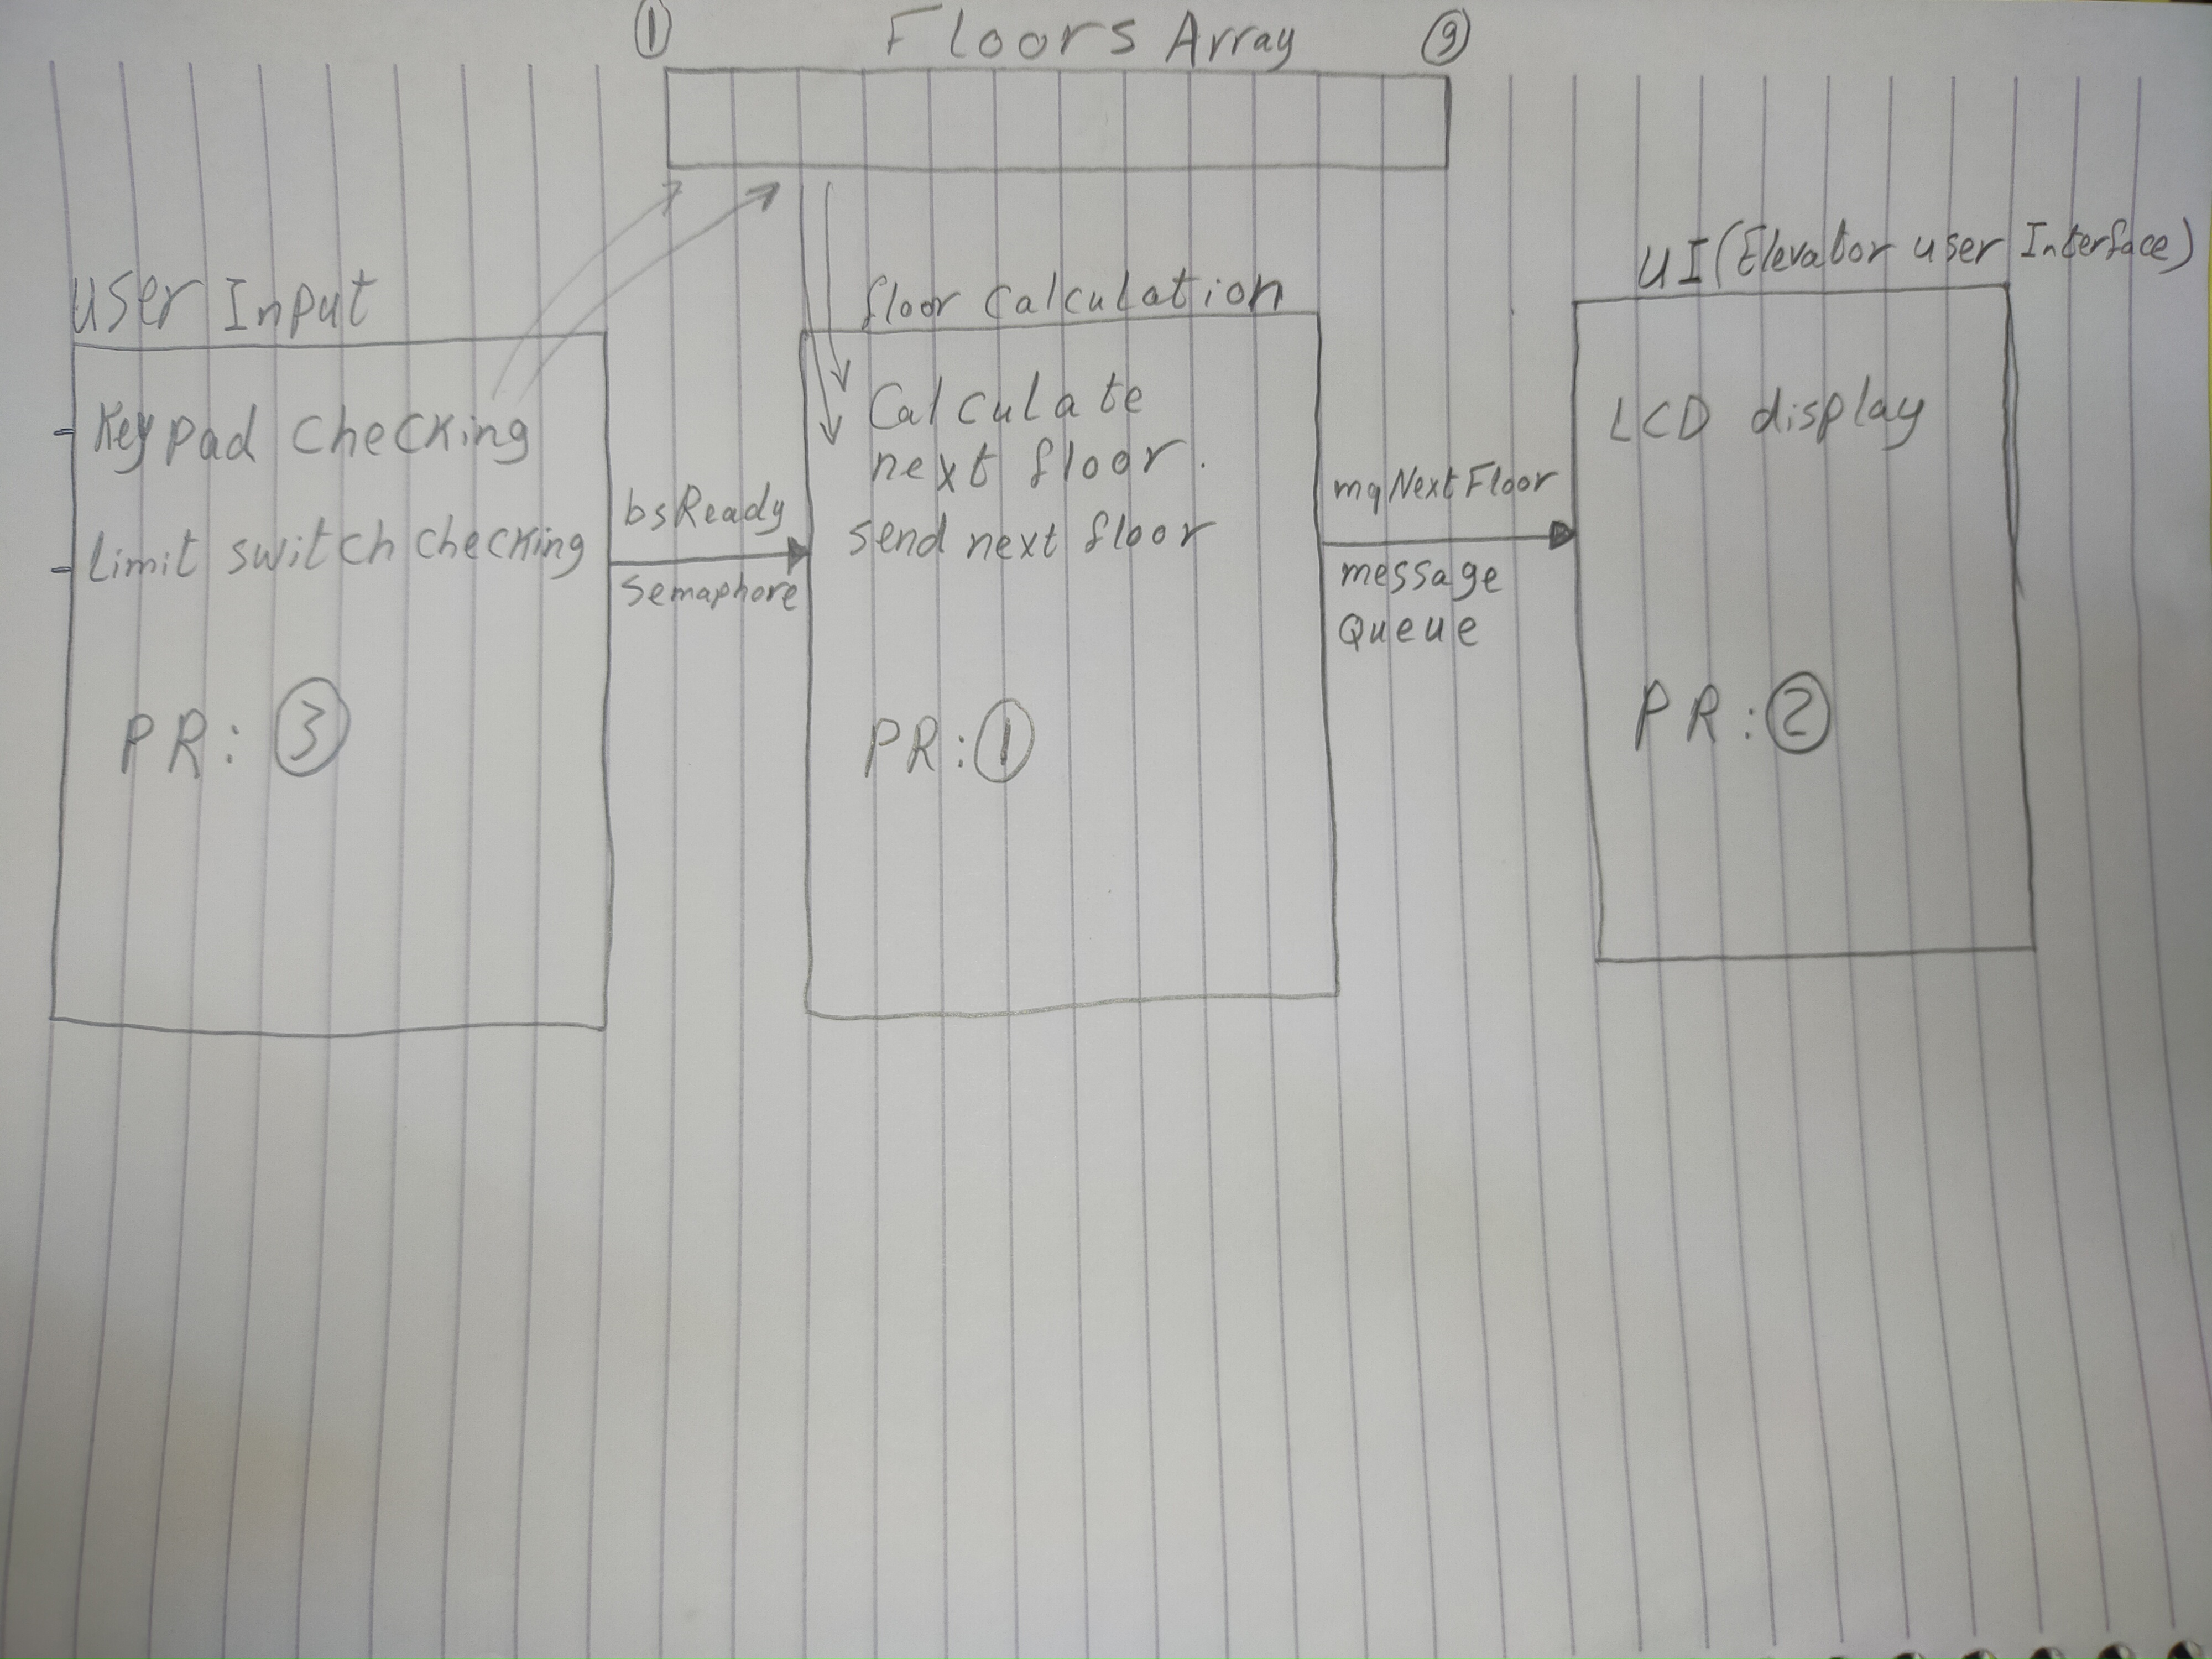 ① Floors Array ⑨
User Input
Keypad checking
Limit switch checking
PR: ③
bsReady
Semaphore
floor calculation
Calculate
next floor.
send next floor
PR: ①
mqNextFloor
message
Queue
UI (Elevator user Interface)
LCD display
PR: ②